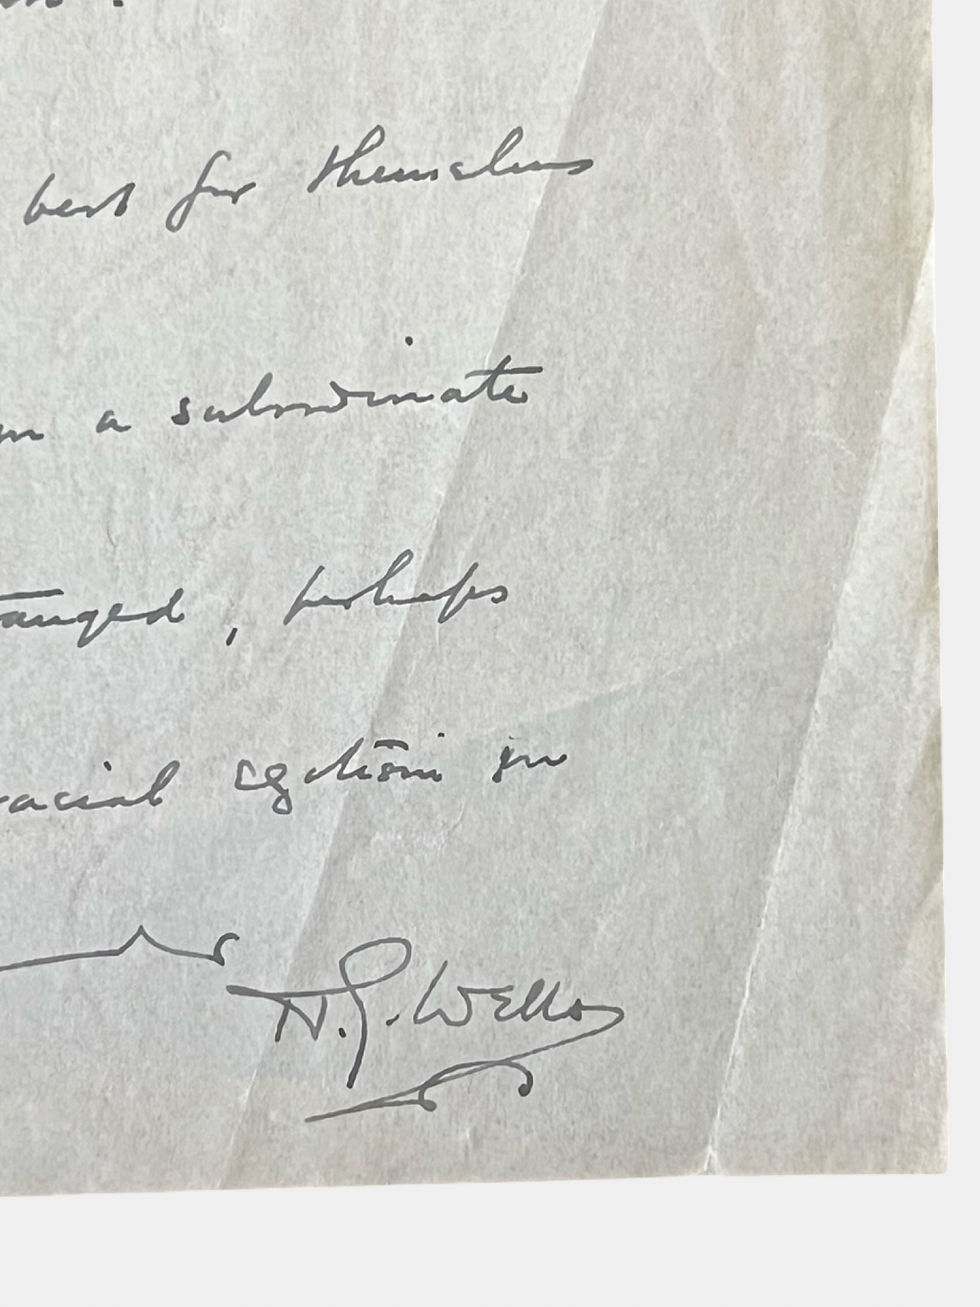 best for themselves
a subordinate
anged, perhaps
racial egotism in
H.G. Wells